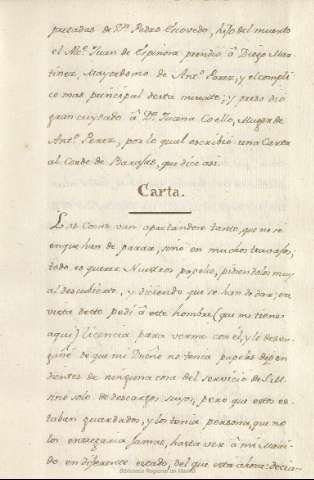 pretadas de Dn. Pedro Escovedo, hijo del muerto
el Mo. Juan de Espinosa prendio â Diego Mar-
tinez, Mayordomo de Anto. Perez, y el compli-
ce mas principal desta muerte; y preso dio
gran cuydado â Da. Juana Coello, Muger de
Anto. Perez, por lo qual escribio una Carta
al Conde de Barajas, que dice asi.
Carta.
Las Cosas van apretandose tanto, que no sè
en que han de parar, sino en muchos trabajos;
todo es querer Nuestros papeles, pidiendolos muy
al descubierto, y diciendo que se han de dar; en
vista desto pedi â este hombre (que mi tienes
aqui) licencia para verme con el, y le desen-
gañé de que mi Dueño no tenia papeles depen
dientes de ninguna cosa del servicio de S. M.
sino solo de descargos suyos, pero que estos es-
taban guardados, y los tenia persona, que no
los entregaria jamas, hasta ver â mi Mari-
do en diferente estado, del que está ahora: decia-
Biblioteca Regional de Madrid